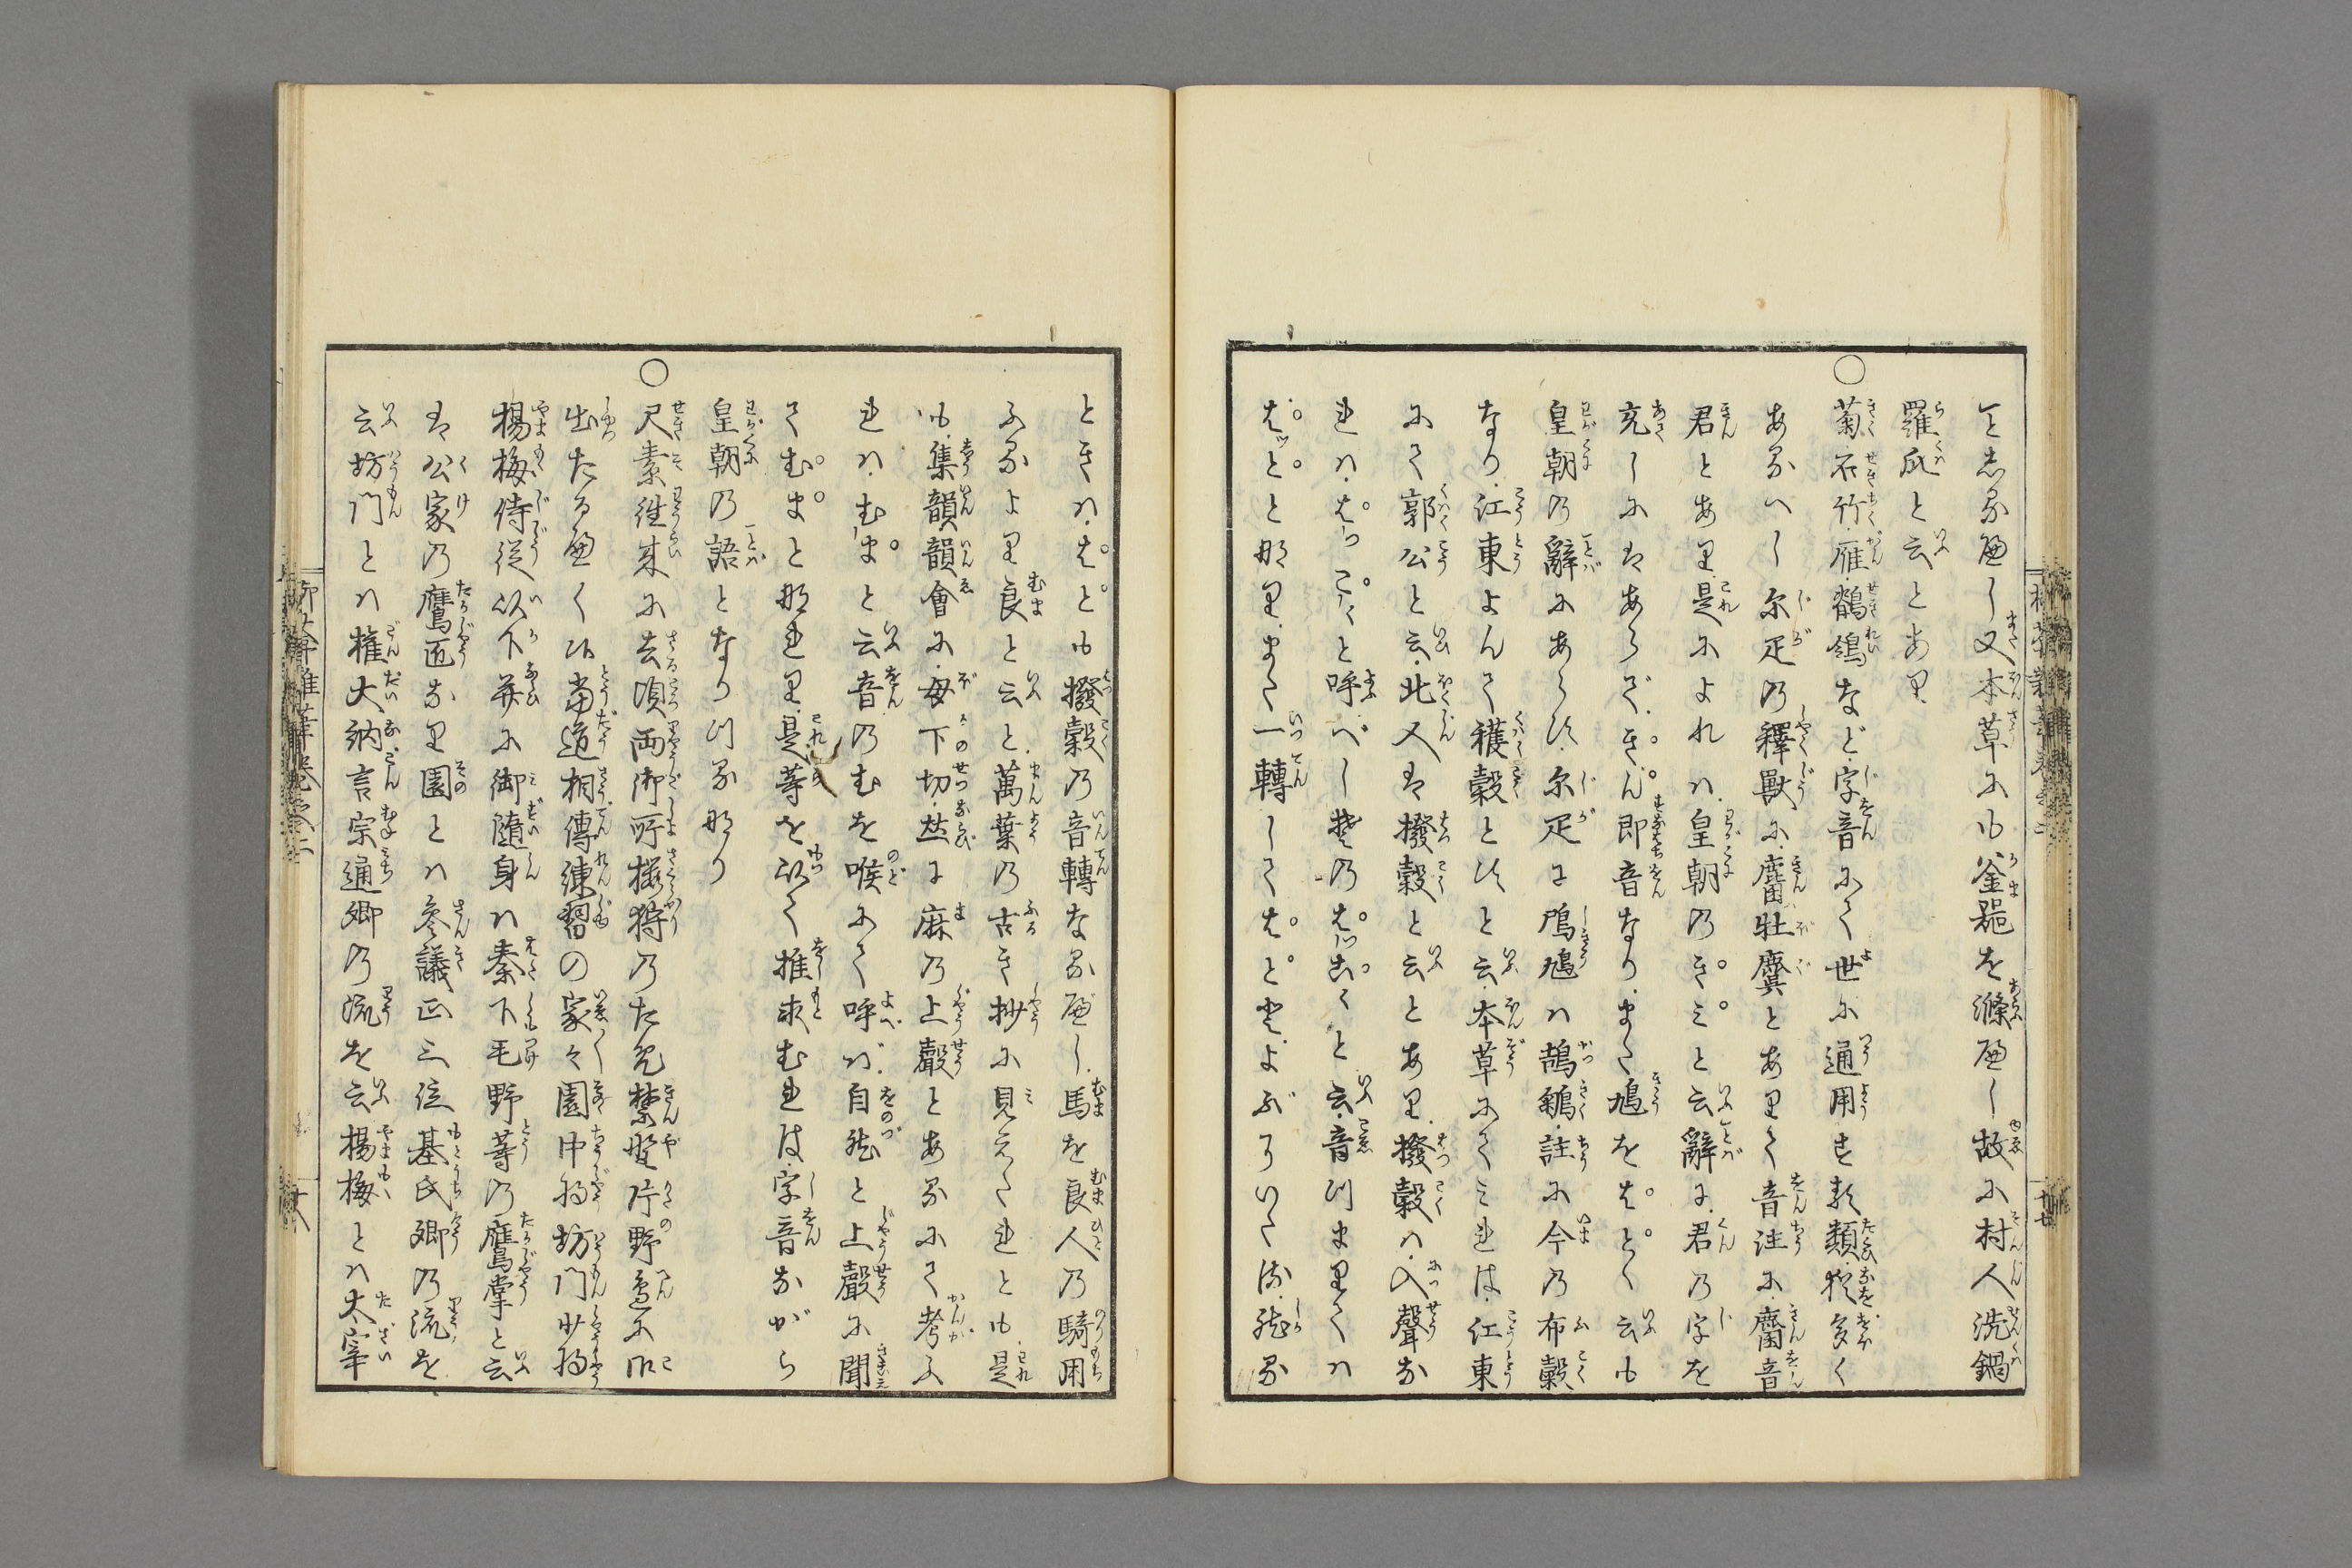 と志るべし又本草にも釜器を滌べし故に村人洗鍋
羅瓜と云とあり
○菊石竹雁鶺鴒など字音にて世に通用する類猶多く
あるべし尓疋の釋獸に麕牡麌とあリて音注に麕音
君とあり是によれハ皇朝のきミと云辭は君の字を
充しにはあらできん即音なりまた鳩をはとく云も
皇朝の辭にあらす尓疋に鳲鳩ハ鴶鵴註に今の布穀
なり江東よんて穫穀とすと云本草にてミれば江東
にて郭公と云北人は撥穀と云とあり撥穀ハ入聲な
れハはつこくと呼べし その はつこくと云音つまりてハ
はツとと那りまた一轉してはと と よぶりいた 然る
ときハはとも撥穀の音轉なるべし馬を良人の騎用
ふるより良と云と萬葉の古き抄に見えたれとも是
も集韻韻會に母下切丛に麻の上聲とあるにて考ふ
れハむまと云音のむを喉にて呼ば自然と上聲に聞
てむまと那れり是等を以て推求むれば字音ながら
皇朝の語となりつる那り
○尺素往来に去頃両御所桜狩のため禁野片野邉に御
出たるべく候當道相傳練習の家々園中将坊門少将
楊梅侍従以下并に御随身ハ秦下毛野等の鷹掌と云
は公家の鷹匠なり園とハ参議正三位基氏卿の流を
云坊門とハ権大納言宗通卿の流を云楊梅とハ太宰